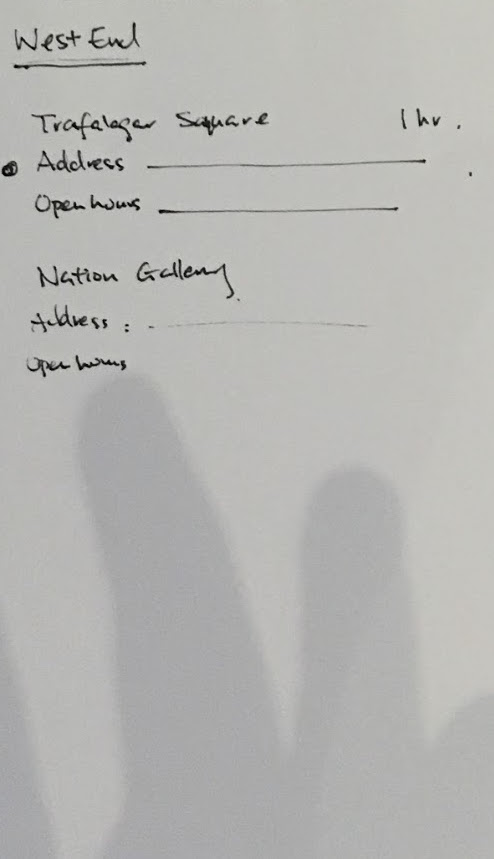 West End
Trafalagar Square 1 hr.
Address
Open hours
Nation Gallery
Address :
Open hours